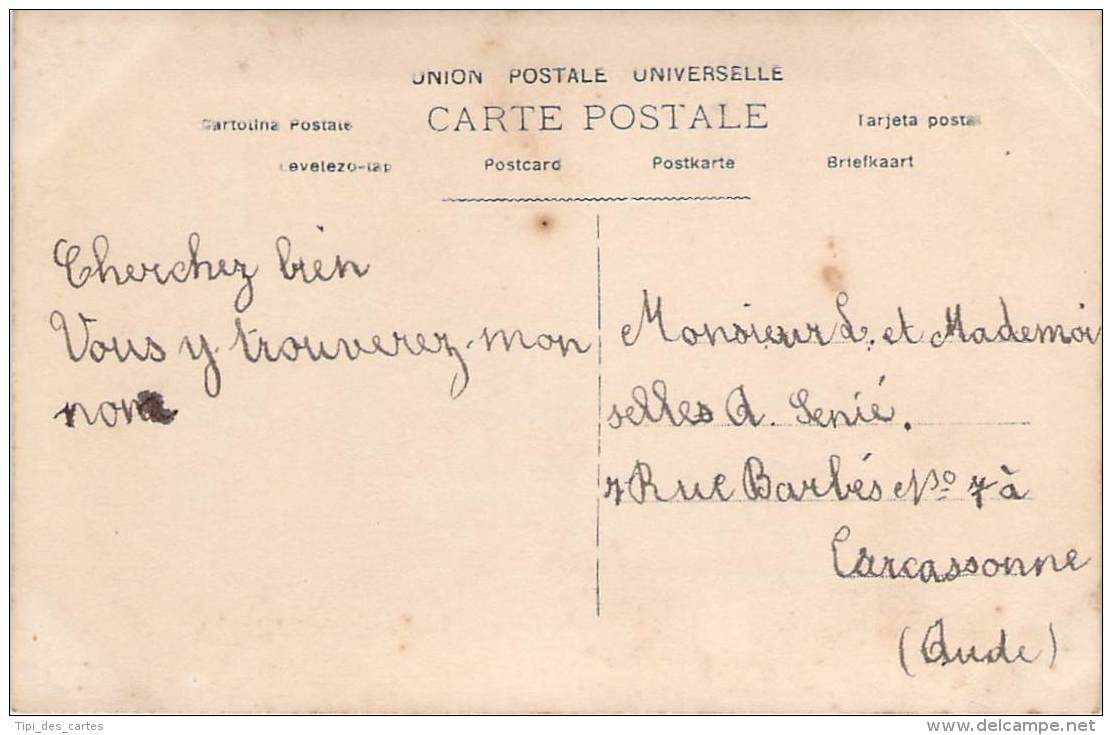 UNION POSTALE UNIVERSELLE
CARTE POSTALE
Cartolina Postale
Tarjeta postal
Levelezo-lap
Postcard
Postkarte
Briefkaart
Cherchez bien
Vous y trouverez mon
nom
Monsieur L. et Mademoi
selles A. Senié.
7 Rue Barbés No 7 à
Carcassonne
(Aude)
Tipi_des_cartes
delcampe.net